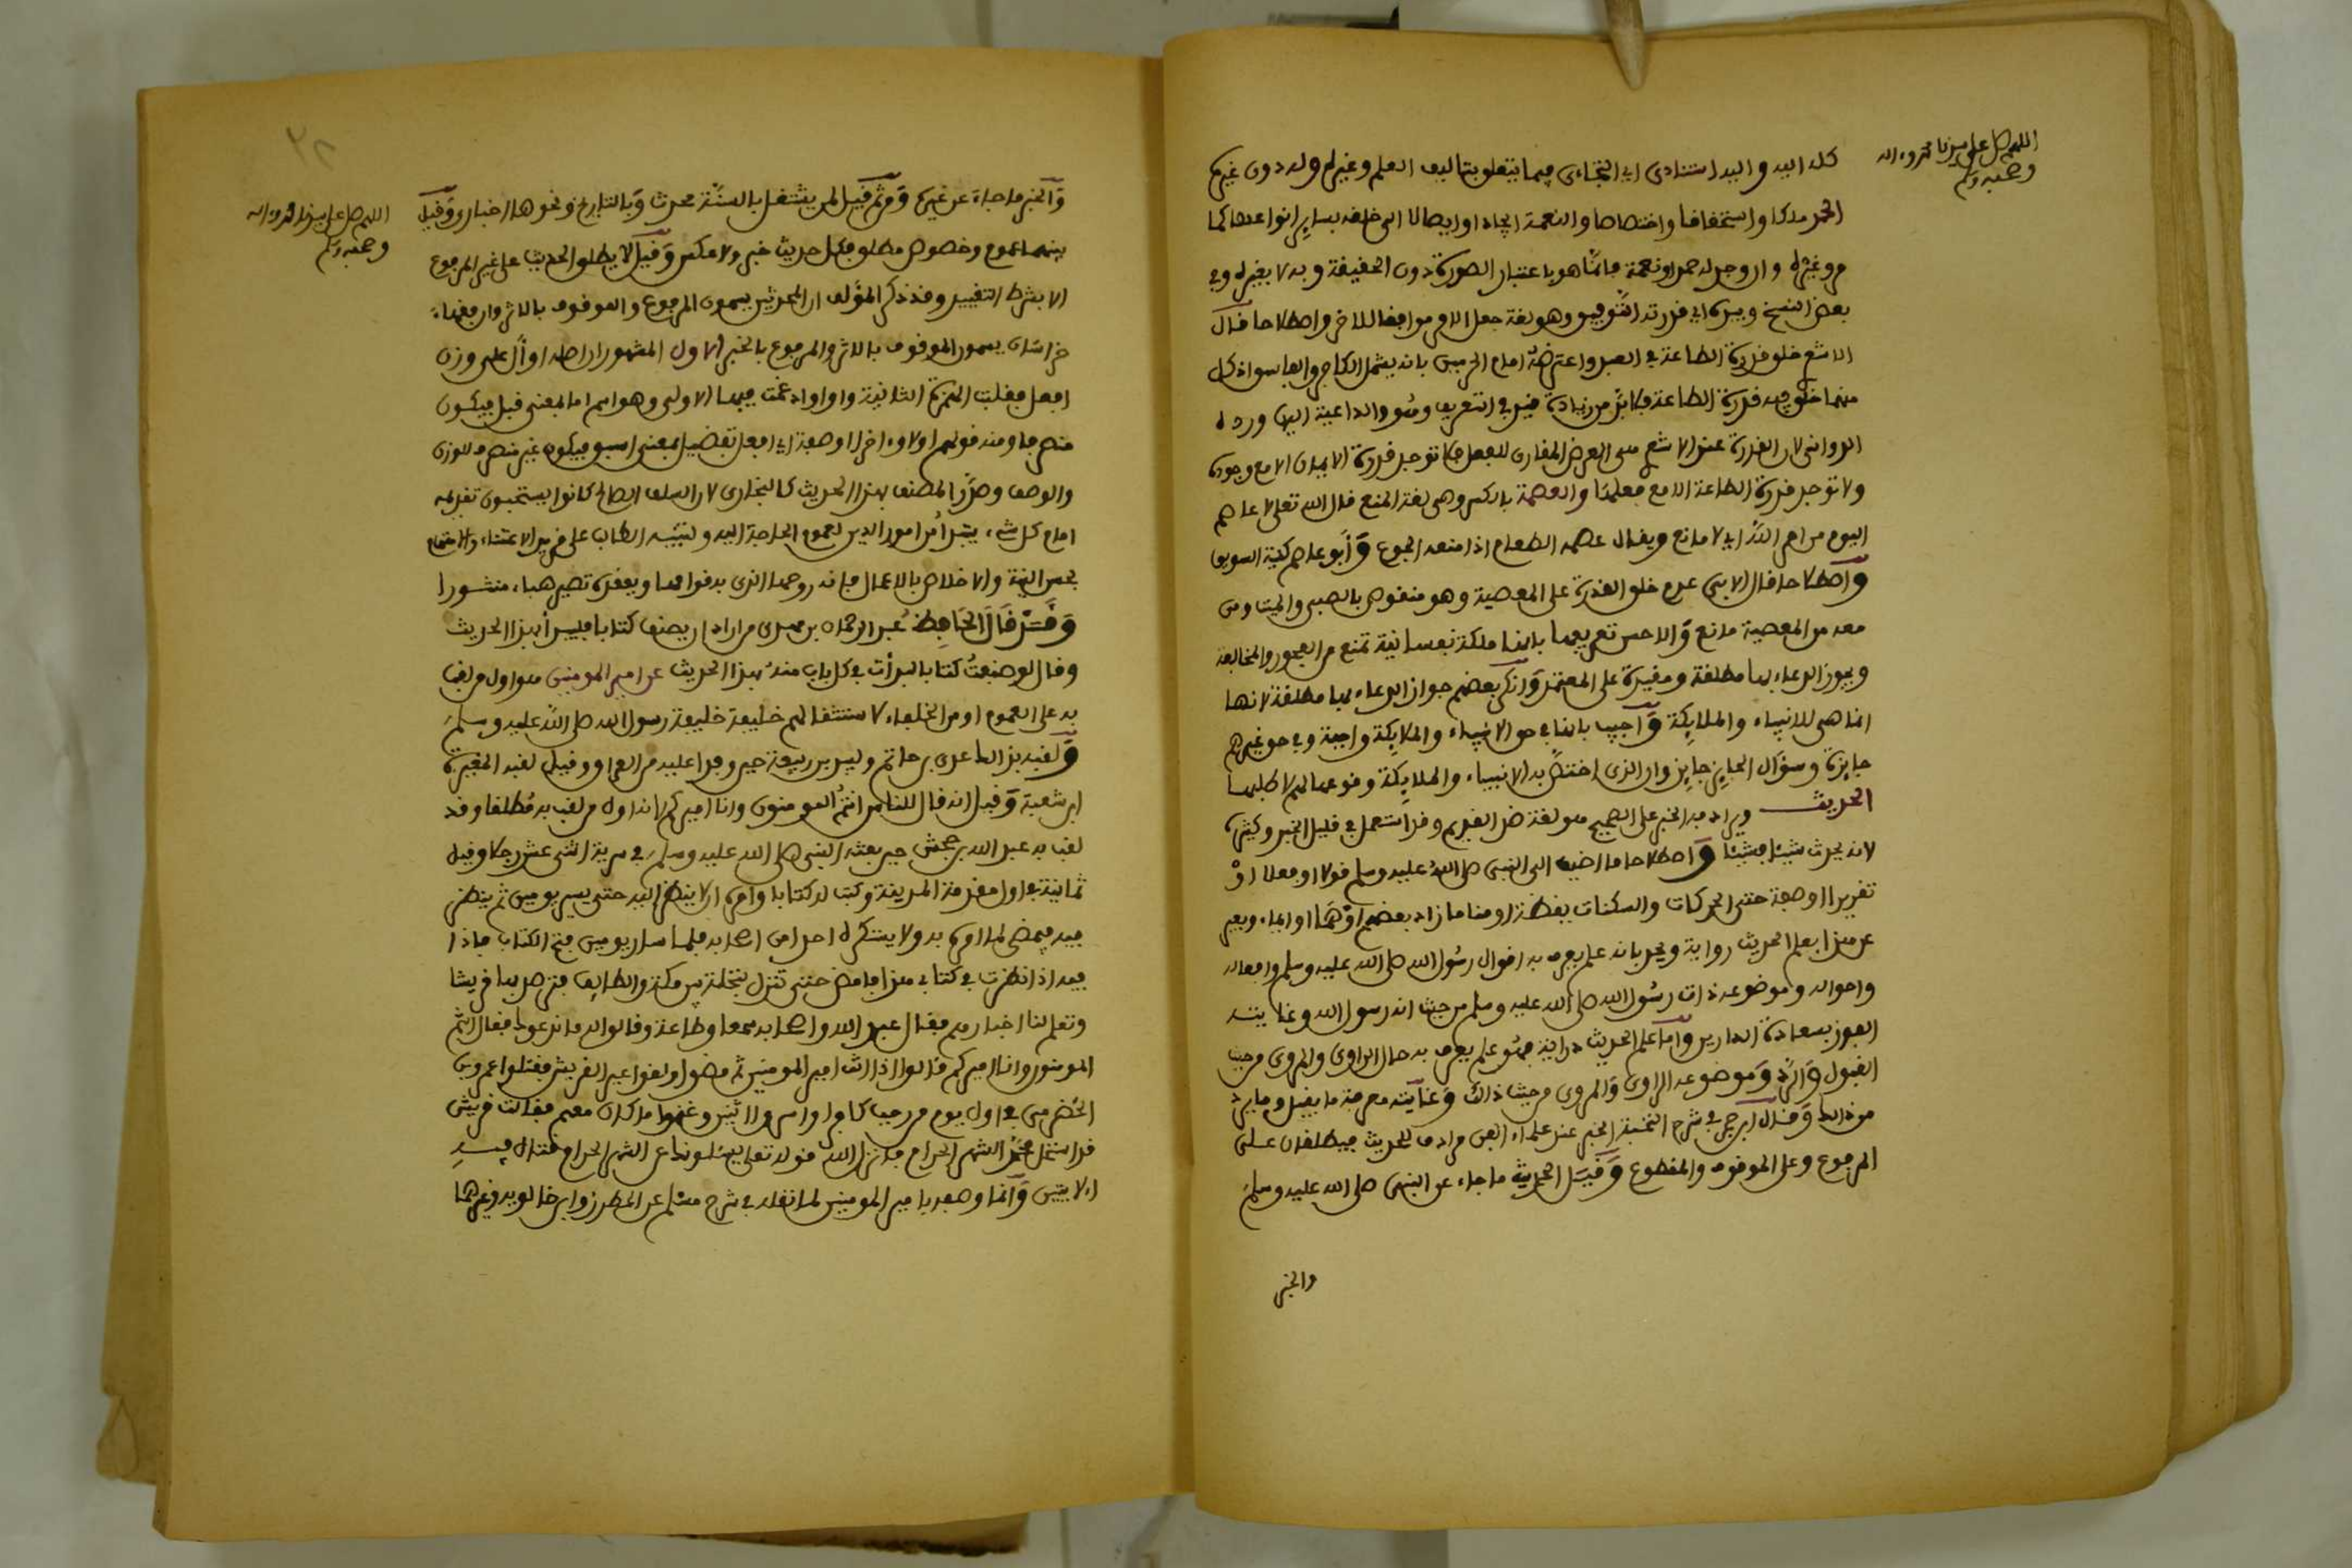 اللهم صل على سيدنا محمد وءاله
وصحبه وسلم
كله اليه واليه استنادى اي التجاءى فيما يتعلق بتاليف العلم وغيره له دون غيره
الحمد ملكا واستحقاقا واختصاصا والنعمة ايجادا وايصالا الى خلقه بساير انواعها كما
مر وغيره وان وجد له حمد او نعمة فانما هو باعتبار الصورة دون الحقيقة وبه لا بغيره وفي
بعض النسخ وبيده اي قدرته التوفيق وهو لغة جعل الامر موافقا للاخر واصطلاحا قال
الاشعري خلق قدرة الطاعة في العبد واعترضه امام الحرمين بانه يشمل الكافر والفاسق اذ كل
منهما خلق فيه قدرة الطاعة فلا بد من زيادة قيد في التعريف وهو والداعية اليها ورده
الدواني لان القدرة عند الاشعري هى العرض المقارن للفعل فلا توجد قدرة الايمان الا مع وجوده
ولا توجد قدرة الطاعة الا مع فعلها والعصمة بالكسر وهى لغة المنع قال الله تعلى لا عاصم
اليوم من امر الله اي لا مانع ويقال عصمه الطعام اذا منعه الجوع وأبو عاصم كنية السويق
واصطلاحا قال الابي عدم خلق القدرة على المعصية وهو منقوض بالصبي والميت ومن
معه من المعصية مانع والاحسن تعريفها بانها ملكة نفسانية تمنع من الفجور والمخالفة
ويجوز الدعاء بها مطلقة ومقيدة على المعتمد وانكر بعضهم جواز الدعاء بها مطلقة لانها
انما هى للانبياء والملايكة واجيب بانها في حق الانبياء والملايكة واجبة وفي حق غيرهم
جايزة وسؤال الجايز جايز وان الذى اختص به الانبياء والملايكة وقوعها لهم لا طلبها
الحديث ويرادفه الخبر على الصحيح هو لغة ضد القديم وقد استعمل في قليل الخبر وكثيره
لانه يحدث شيئا فشيئا واصطلاحا ما اضيف الى النبى صلى الله عليه وسلم قولا او فعلا او
تقريرا او صفة حتى الحركات والسكنات يقظة او مناما زاد بعضهم او هما او ايماء ويعبر
عن هذا بعلم الحديث رواية ويحد بانه علم يعرف به اقوال رسول الله صلى الله عليه وسلم وافعاله
واحواله وموضوعه ذات رسول الله صلى الله عليه وسلم من حيث انه رسول الله وغايته
الفوز بسعادة الدارين واما علم الحديث دراية فهو علم يعرف به حال الراوى والمروى من حيث
القبول والرد وموضوعه الراوى والمروى من حيث ذلك وغايته معرفة ما يقبل وما يرد
من ذلك وقال ابن حجر في شرح النخبة الخبر عند علماء الفن مرادف للحديث فيطلقان على
المرفوع وعلى الموقوف والمقطوع وقيل الحديث ما جاء عن النبى صلى الله عليه وسلم
والخبر
اللهم صل على سيدنا محمد وءاله
وصحبه وسلم
والخبر ما جاء عن غيره ومن ثم قيل لمن يشتغل بالسنة محدث وبالتاريخ ونحوها اخبارى وقيل
بينهما عموم وخصوص مطلق فكل حديث خبر ولا عكس وقيل لا يطلق الحديث على غير المرفوع
الا بشرط التقييد وقد ذكر المؤلف ان المحدثين يسمون المرفوع والموقوف بالاثر وان فقهاء
خراسان يسمون الموقوف بالاثر والمرفوع بالخبر الاول المشهور ان اصله اوأل على وزن
افعل فقلبت الهمزة الثانية واوا وادغمت فيها الاولى وهو اسم اما لمعنى قبل فيكون
منصرفا ومنه قولهم اولا وءاخرا او صفة اي افعل تفضيل بمعنى اسبق فيكون غير منصرف للوزن
والوصف وصدر المصنف بهذا الحديث كالبخارى لان السلف الصالح كانوا يستحبون تقديمه
امام كل شيء يبتدأ من امور الدين لعموم الحاجة اليه ولتنبيه الطالب على مزيد الاعتناء والاهتمام
بحسن النية والاخلاص بالاعمال فانه روحها الذى به قوامها وبفقده تصير هباء منثورا
وقد قال الحافظ عبد الرحمان بن مهدى من اراد ان يصنف كتابا فليبدأ بهذا الحديث
وقال لو صنعت كتابا لبدأت في كل باب منه بهذا الحديث عن امير المومنين هو اول من لقب
به على العموم او من الخلفاء لاستثقالهم خليفة خليفة رسول الله صلى الله عليه وسلم
ولقبه بذلك عدى بن حاتم ولبيد بن ربيعة حين وفدا عليه من العراق وقيل لقبه المغيرة
ابن شعبة وقيل انه قال للناس انتم المومنون وانا اميركم لا انه اول من لقب به مطلقا وقد
لقب به عبد الله بن جحش حين بعثه النبى صلى الله عليه وسلم في سرية اثنى عشر رجلا وقيل
ثمانية اول مقدمة المدينة وكتب له كتابا وامره ان لا ينظر اليه حتى يسير يومين ثم ينظر
فيه فيمضى لما امره به ولا يستكره احدا من اصحابه فلما سار يومين فتح الكتاب فاذا
فيه اذا نظرت في كتابى هذا فامض حتى تنزل بنخلة بين مكة والطايف فترصد بها قريشا
وتعلم لنا اخبارهم فقال عبد الله واصحابه سمعا وطاعة وقالوا له ما ندعوك فقال انتم
المومنون وانا اميركم قالوا اذا انت امير المومنين ثم مضوا ولقوا عير القريش فقتلوا عمرو بن
الحضرمى في اول يوم من رجب كافرا واسروا اثنين وغنموا ما كان معهم فقالت قريش
قد استحل محمد الشهر الحرام فانزل الله قوله تعلى يسئلونك عن الشهر الحرام قتال فيه
الايتين وانما وصف بامير المومنين لما نقله في شرح مسلم عن المطرز وابن خالويه وغيرهما